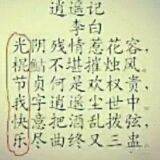 逍遥记
李白
光阴残情惹花容,
棍不堪摧烛风。
节贞何是欢权贵,
我字逍遥丘世中。
快意把酒乱拨弦,
乐尽曲终又三盅。